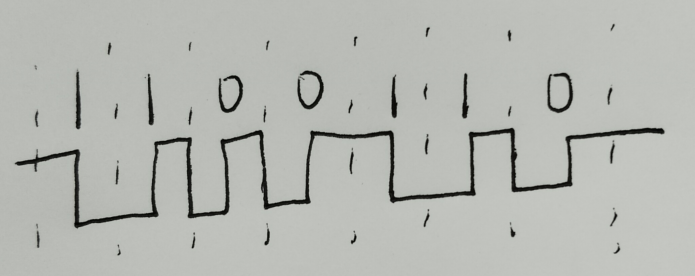 1 1 0 0 1 1 0